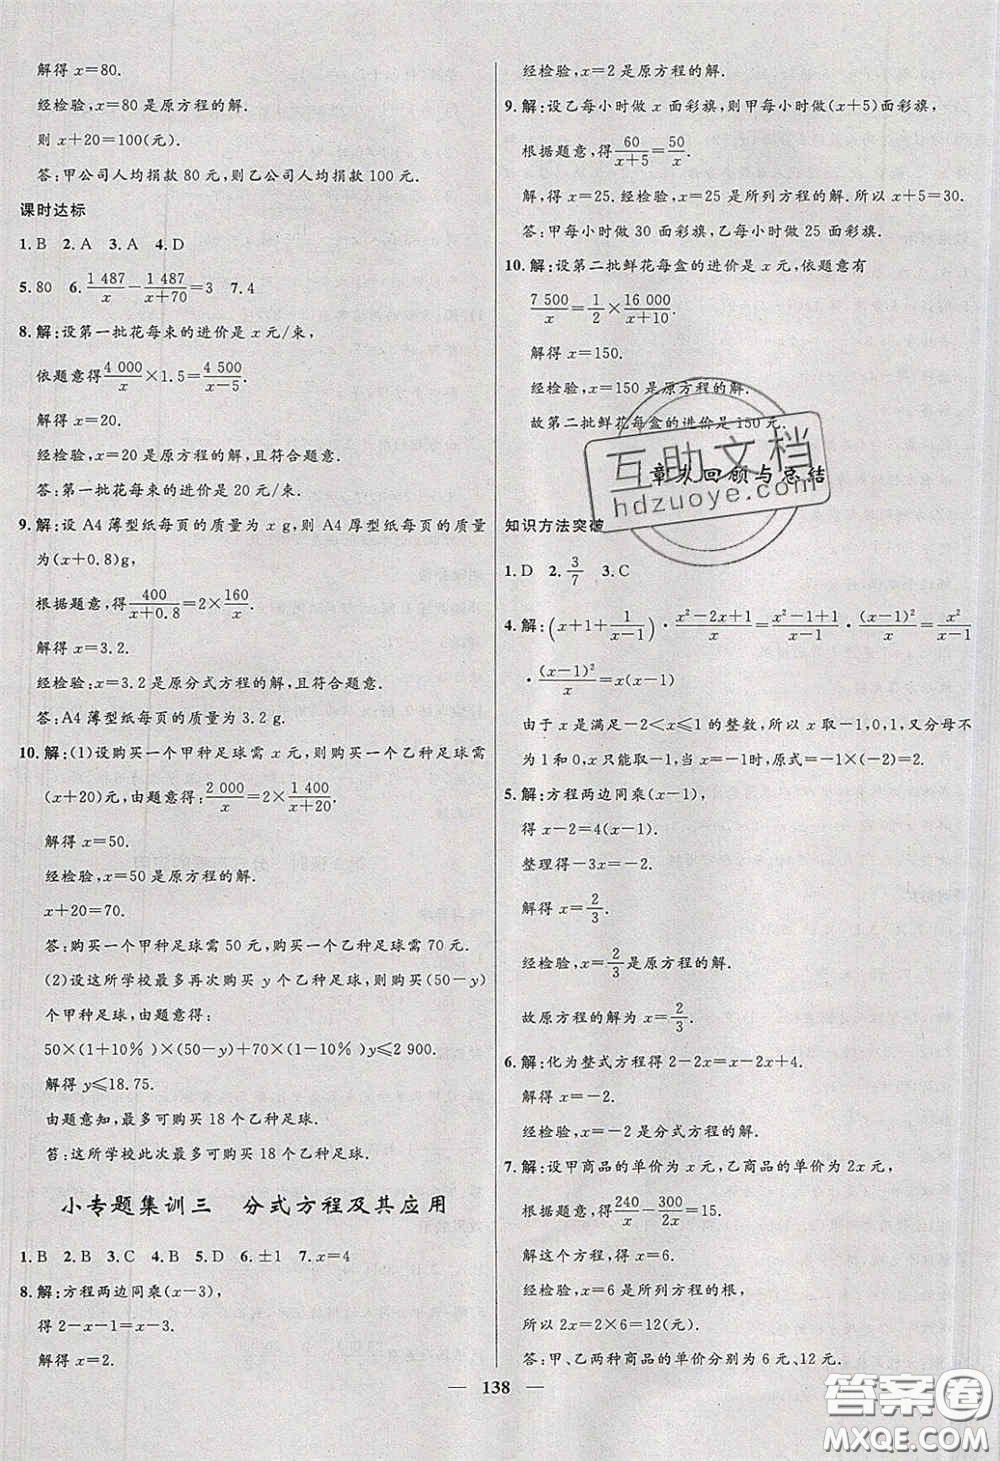 解得 x=80.
经检验,x=80 是原方程的解.
则 x+20=100(元).
答:甲公司人均捐款 80 元,则乙公司人均捐款 100 元.
课时达标
1.B 2.A 3.A 4.D
5.80 6.1 487/x−1 487/(x+70)=3 7.4
8.解:设第一批花每束的进价是 x 元/束,
依题意得4 000/x×1.5=4 500/(x−5).
解得 x=20.
经检验,x=20 是原方程的解,且符合题意.
答:第一批花每束的进价是 20 元/束.
9.解:设 A4 薄型纸每页的质量为 x g,则 A4 厚型纸每页的质量
为(x+0.8)g,
根据题意,得400/(x+0.8)=2×160/x.
解得 x=3.2.
经检验:x=3.2 是原分式方程的解,且符合题意.
答:A4 薄型纸每页的质量为 3.2 g.
10.解:(1)设购买一个甲种足球需 x 元,则购买一个乙种足球需
(x+20)元,由题意得:2 000/x=2×1 400/(x+20).
解得 x=50.
经检验,x=50 是原方程的解.
x+20=70.
答:购买一个甲种足球需 50 元,购买一个乙种足球需 70 元.
(2)设这所学校最多再次购买 y 个乙种足球,则购买(50−y)
个甲种足球,由题意得:
50×(1+10%)×(50−y)+70×(1−10%)y≤2 900.
解得 y≤18.75.
由题意知,最多可购买 18 个乙种足球.
答:这所学校此次最多可购买 18 个乙种足球.
小专题集训三 分式方程及其应用
1.B 2.B 3.C 4.B 5.D 6.±1 7.x=4
8.解:方程两边同乘(x−3),
得 2−x−1=x−3.
解得 x=2.
经检验,x=2 是原方程的解.
9.解:设乙每小时做 x 面彩旗,则甲每小时做(x+5)面彩旗,
根据题意,得60/(x+5)=50/x.
解,得 x=25. 经检验,x=25 是所列方程的解. 所以 x+5=30.
答:甲每小时做 30 面彩旗,乙每小时做 25 面彩旗.
10.解:设第二批鲜花每盒的进价是 x 元,依题意有
7 500/x=1/2×16 000/(x+10).
解得 x=150.
经检验,x=150 是原方程的解.
故第二批鲜花每盒的进价是 150 元.
互助文档
hdzuoye.com
章末回顾与总结
知识方法突破
1.D 2.3/7 3.C
4.解:(x+1+1/(x−1))·(x²−2x+1)/x=(x²−1+1)/(x−1)·(x−1)²/x=x²/(x−1)
·(x−1)²/x=x(x−1)
由于 x 是满足−2<x≤1 的整数,所以 x 取−1,0,1,又分母不
为 1 和 0,因而 x 只能取−1,当 x=−1 时,原式=−1×(−2)=2.
5.解:方程两边同乘(x−1),
得 x−2=4(x−1).
整理得−3x=−2.
解得 x=2/3.
经检验,x=2/3是原方程的解.
故原方程的解为 x=2/3.
6.解:化为整式方程得 2−2x=x−2x+4.
解得 x=−2.
经检验,x=−2 是分式方程的解.
7.解:设甲商品的单价为 x 元,乙商品的单价为 2x 元,
根据题意,得240/x−300/2x=15.
解这个方程,得 x=6.
经检验,x=6 是所列方程的根,
所以 2x=2×6=12(元).
答:甲、乙两种商品的单价分别为 6 元、12 元.
138
答案圈
MXQE.COM